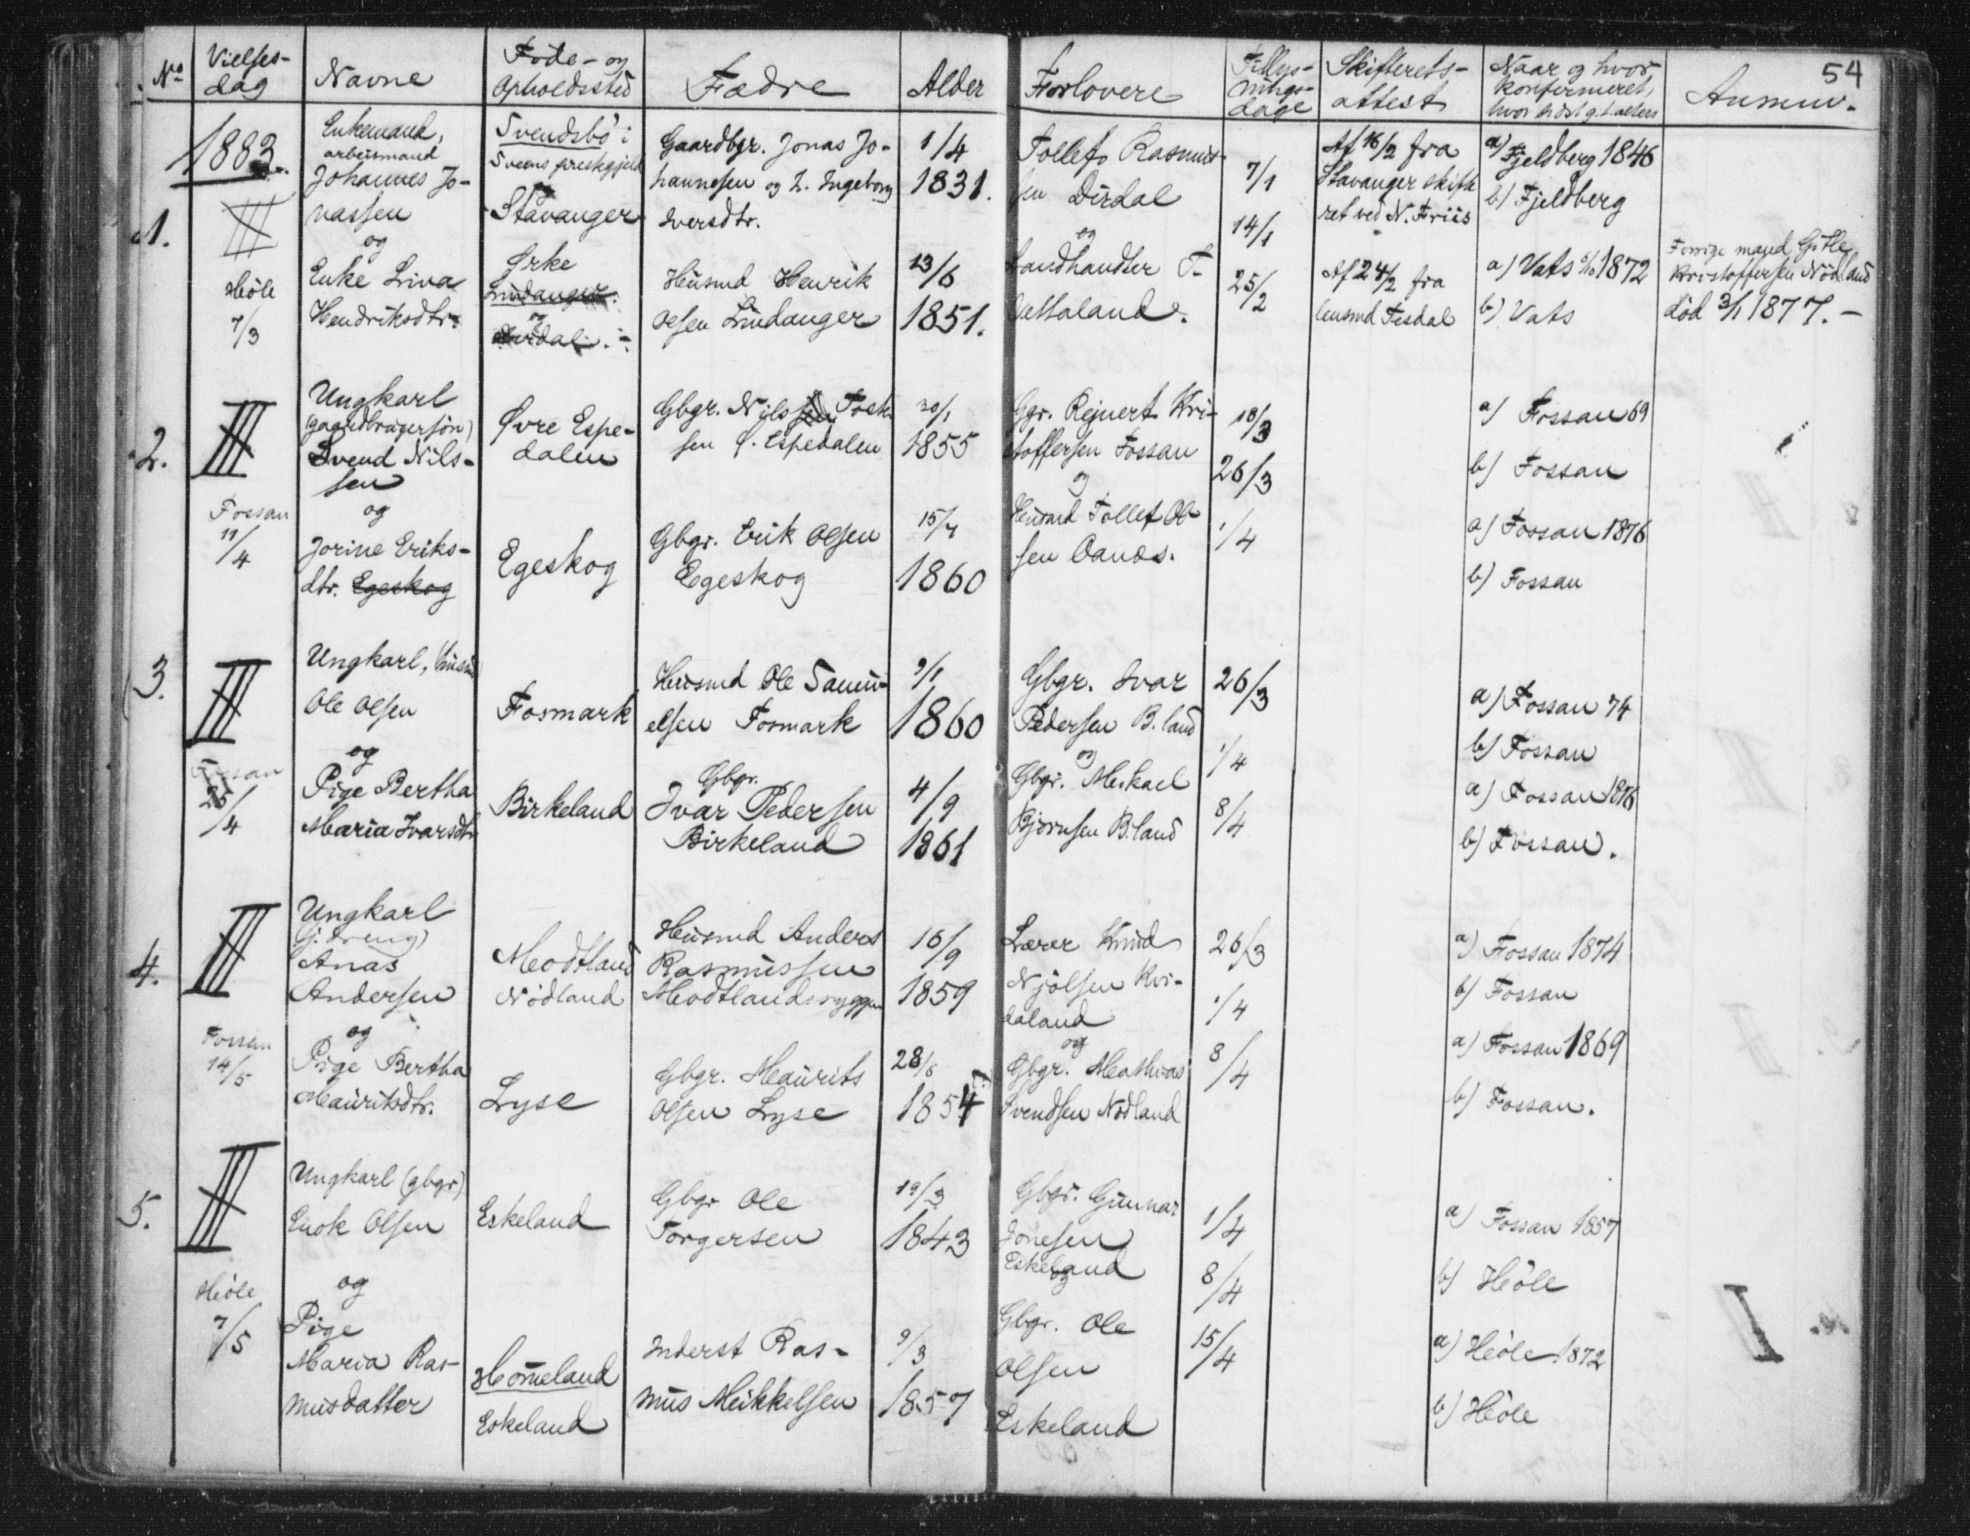 54
No Vielses- dag Navne Føde- og Opholdssted Fædre Alder Forlovere Tillys- nings- dage Skifterets- attest Naar og hvor konfirmeret, hvor Anmm.
1883.
1.
Høle
7/3
Enkemand,
arbeismand
Johannes Jo-
nassen
og
Enke Lina
Hendriksdtr.
Svendsbø i
Sveens prestegjeld
Stavanger
Ørke
Lindanger
og
Gaardbgr. Jonas Jo-
hannesen og H. Ingeborg
Iversdtr.
Husmd Henrik
Olsen Lindanger
1/4
1831.
13/6
1851.
Tollef Rasmus-
sen Dirdal
og
Landhandler T.
Oaltaland.
7/1
14/1
25/2
Af 16/2 fra
Stavanger skifte
ret ved N. Friis
Af 24/2 fra
lensmd Tesdal
a) Fjeldberg 1846
b) Fjeldberg
a) Vats 1872
b) Vats
Forrige mand Gitle
Kristoffersen Nødland
død 3/1 1877. -
2.
Fossan
11/4
Ungkarl
(gaardbrugersøn)
Svend Nils-
sen
og
Jorine Eriks-
dtr. Egeskog
Øvre Espe-
dalen
Egeskog
Gbgr. Nils Tosk
sen Ø. Espedalen
Gbgr. Erik Olsen
Egeskog
30/1
1855
15/7
1860
Ggr. Rejnert Kri-
stoffersen Fossan
og
Husmd Tollef Ol-
sen Oanes.
18/3
26/3
1/4
a) Fossan 69
b) Fossan
a) Fossan 1876
b) Fossan
3.
Fossan
25/4
Ungkarl, (husmd
Ole Olsen
og
Pige Bertha
Maria Ivarsdtr
Fosmark
Birkeland
Husmd Ole Samu-
elsen Fosmark
Gbgr.
Ivar Pedersen
Birkeland
9/1
1860
4/9
1861
Gbgr. Ivar
Pedersen B.land
og
Gbgr. Mikael
Bjørnsen B.land
26/3
1/4
8/4
a) Fossan 74
b) Fossan
a) Fossan 1876
b) Fossan.
4.
Fossan
14/5
Ungkarl
(tj. dreng)
Anas
Andersen
og
Pige Bertha
Mauritsdtr.
Modtland
Nødland
Lyse
Husmd Anders
Rasmussen
Modtlandsryggen
Gbgr. Maurits
Olsen Lyse
16/9
1859
28/6
1854
Lærer Knud
Njølsen Kvi-
daland
og
Gbgr. Mathias
Svendsen Nødland
26/3
1/4
8/4
a) Fossan 1874
b) Fossan
a) Fossan 1869
b) Fossan.
5.
Høle
7/5
Ungkarl (gbgr)
Enok Olsen
og
Pige
Maria Ras-
musdatter
Eskeland
Hommeland
Eskeland
Gbgr Ole
Torgersen
Inderst Ras-
mus Mikkelsen
19/3
1843
9/3
1857
Gbgr. Gunnar
Jonesen
Eskeland
og
Gbgr. Ole
Olsen
Eskeland
1/4
8/4
15/4
a) Fossan 1857
b) Høle
a) Høle 1872
b) Høle